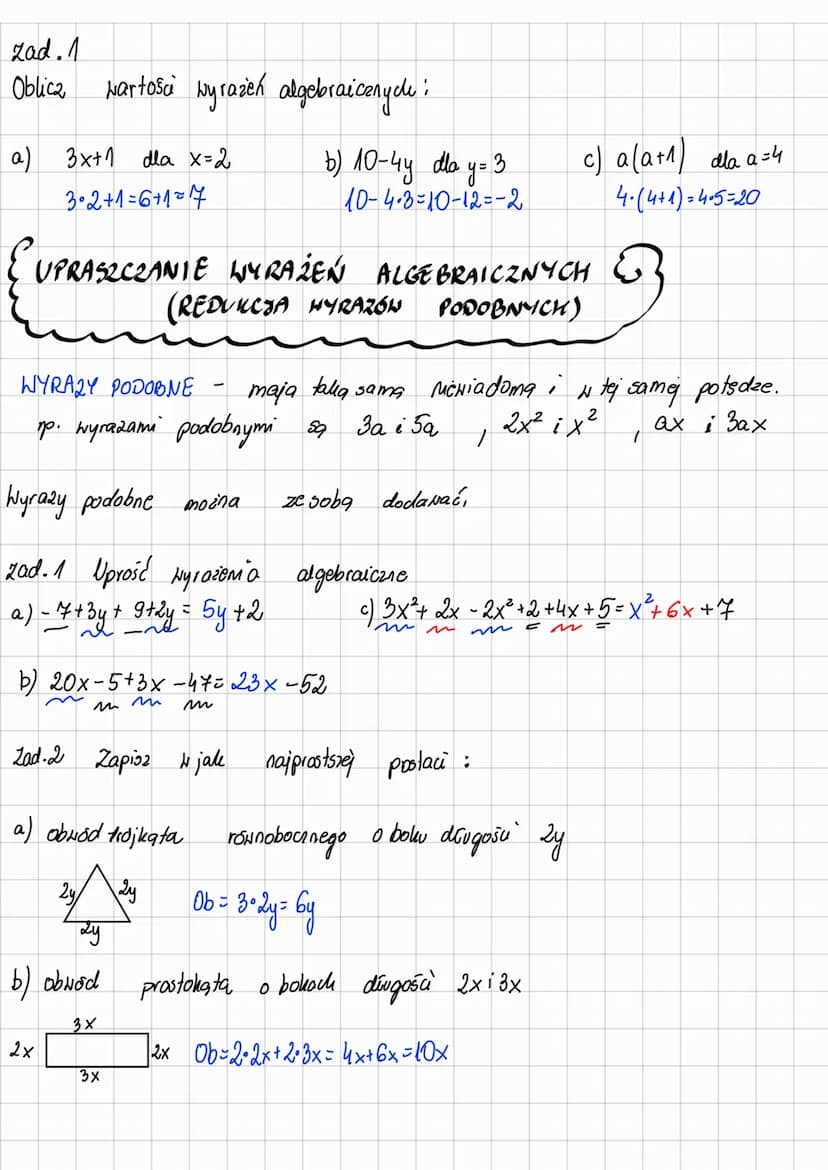 zad. 1
Oblicz wartości wyrażeń algebraicznych:
a) 3x+1 dla x=2 b) 10-4y dla y=3 c) a(a+1) dla a=4
3·2+1=6+1=7 10-4·3=10-12=-2 4·(4+1)=4·5=20
UPRASZCZANIE WYRAŻEŃ ALGEBRAICZNYCH
(REDUKCJA WYRAZÓW PODOBNYCH)
WYRAZY PODOBNE - mają taką samą niewiadomą i w tej samej potędze.
np. wyrazami podobnymi są 3a i 5a, 2x² i x², ax i 3ax
Wyrazy podobne można ze sobą dodawać,
zad. 1 Uprość wyrażenia algebraiczne
a) -7+3y+9+2y=5y+2 c) 3x²+2x-2x²+2+4x+5=x²+6x+7
b) 20x-5+3x-47=23x-52
Zad.2 Zapisz w jak najprostszej postaci:
a) obwód trójkąta równobocznego o boku długości 2y
2y 2y Ob=3·2y=6y
2y
b) obwód prostokąta o bokach długości 2x i 3x
3x
2x 2x Ob=2·2x+2·3x=4x+6x=10x
3x